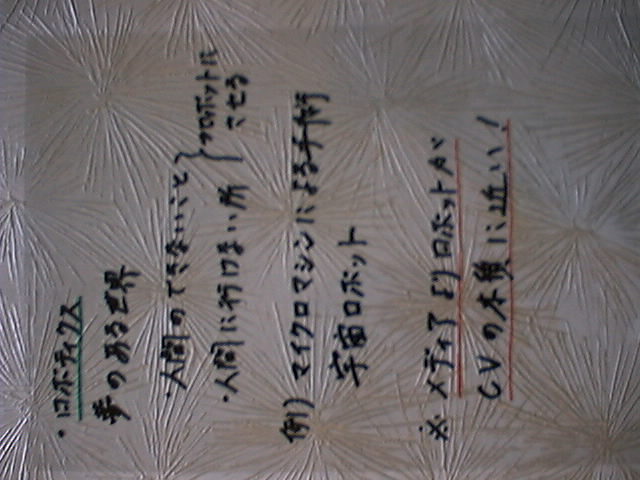 ・ロボティクス
夢のある世界
・人間のできないこと
・人間に行けない所
}ロボットに
させる
例) マイクロマシンによる手術
宇宙ロボット
※ メディアよりロボットが
CVの本積に近い!